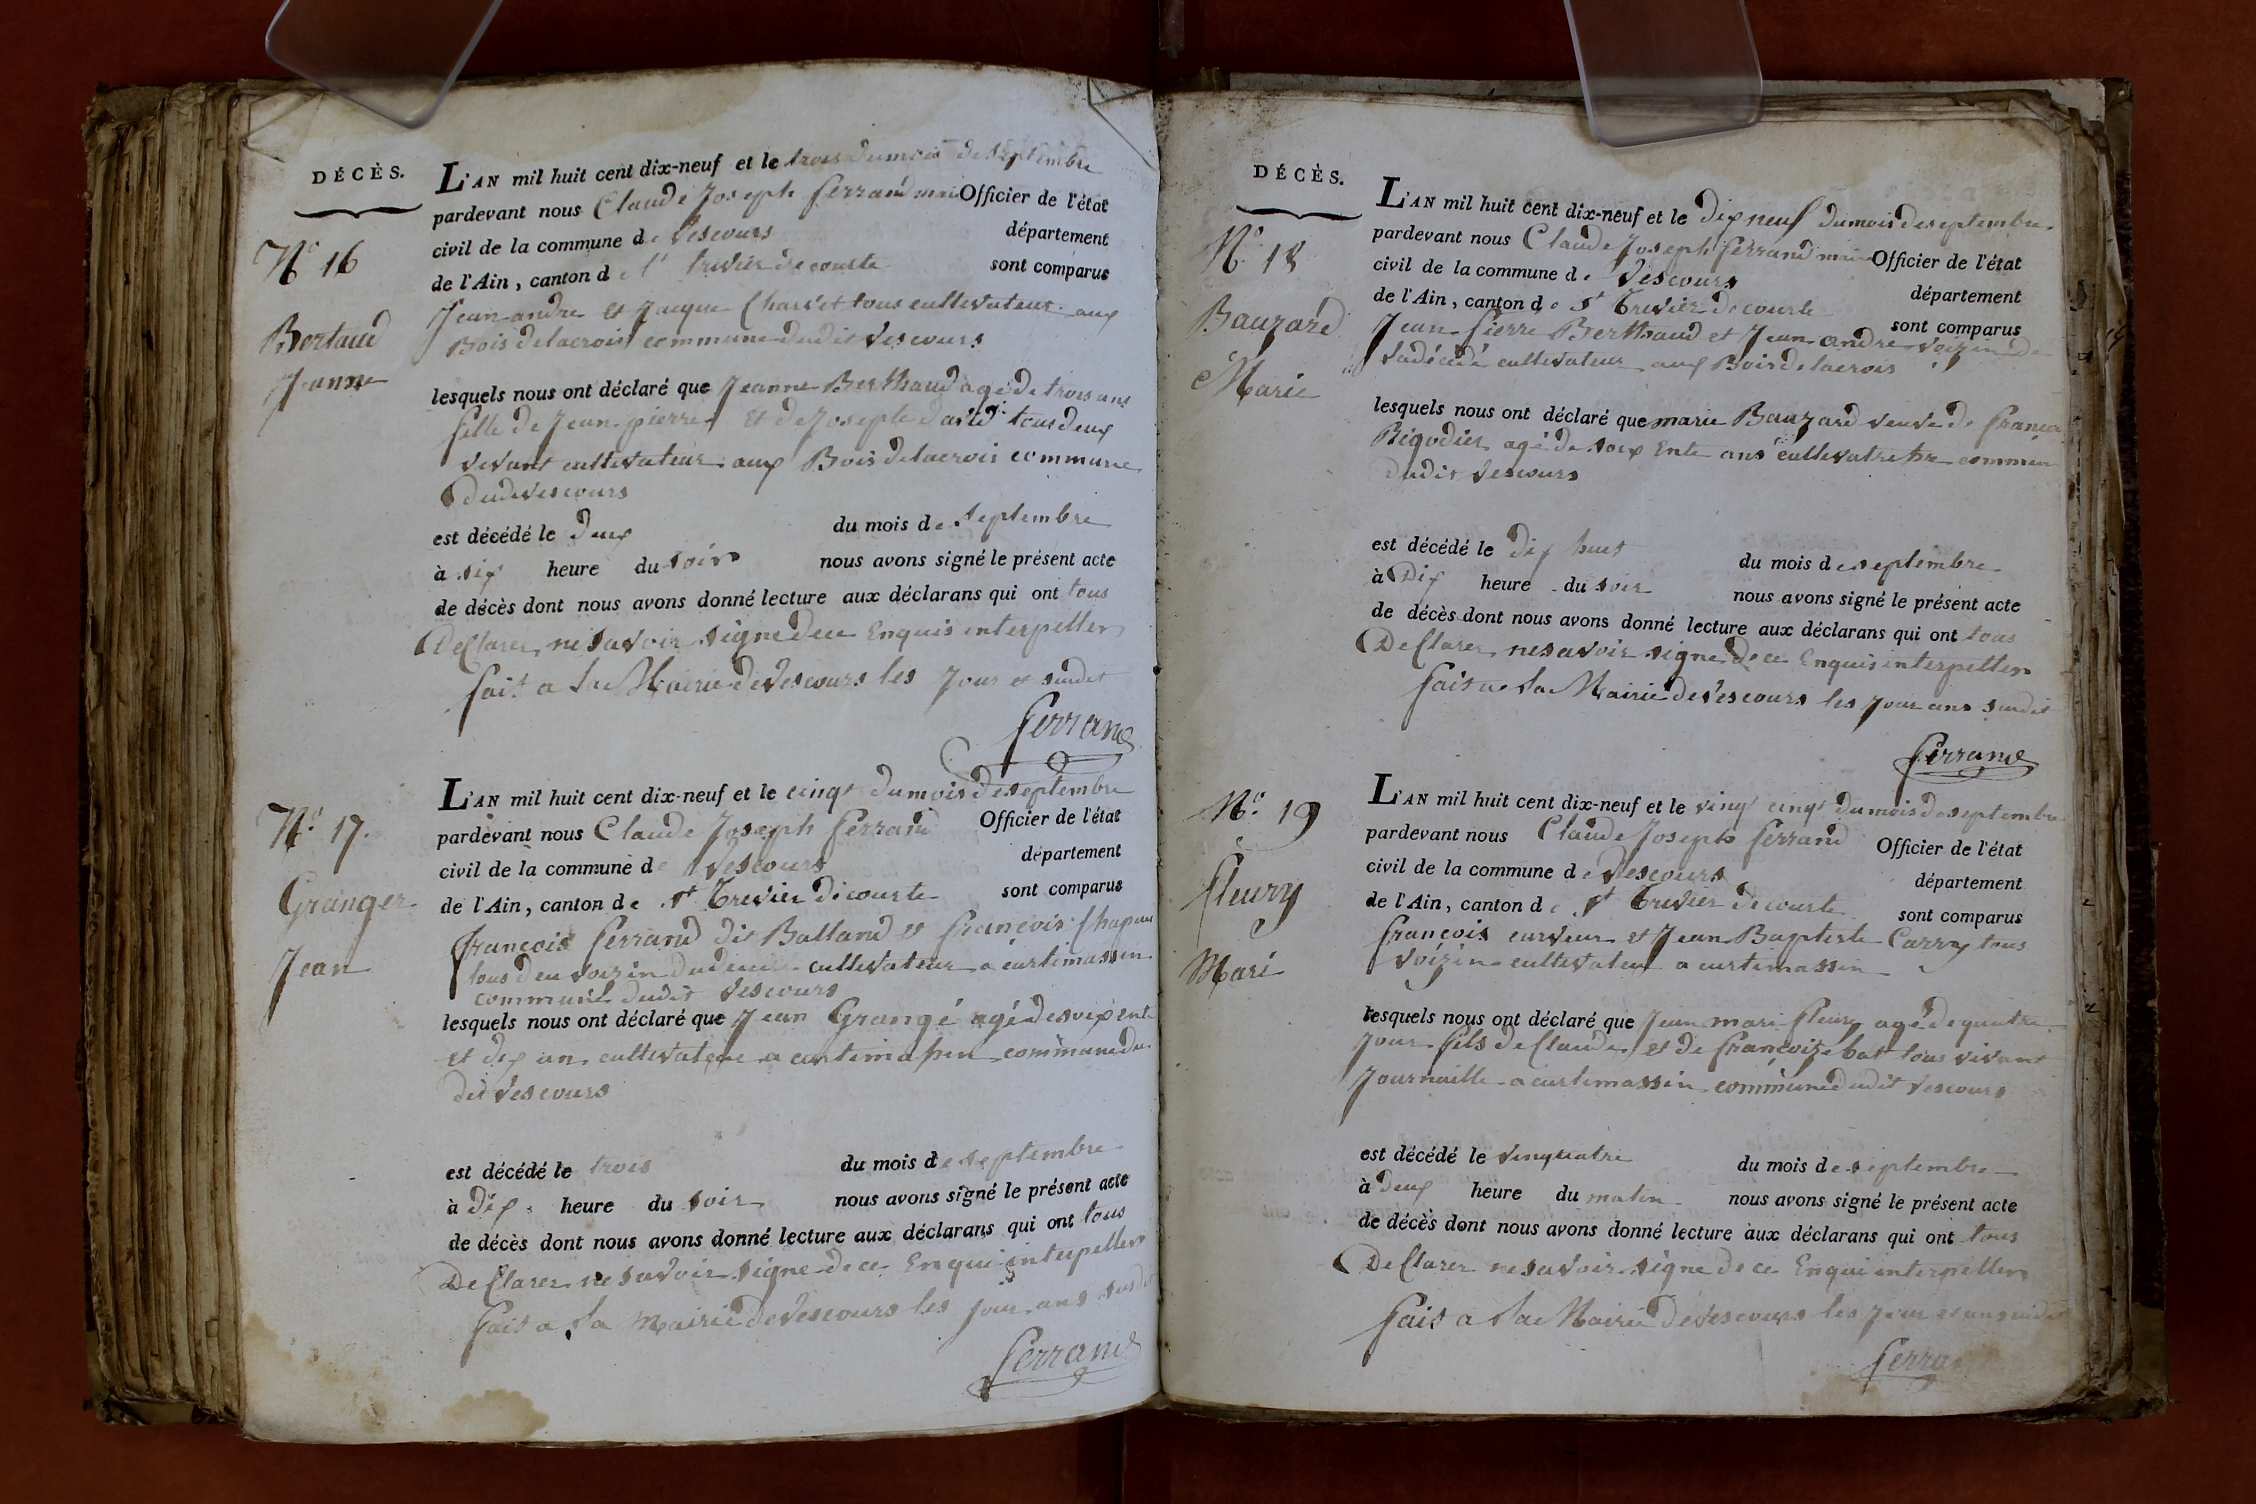 DÉCÈS.
N.º 16
Bertaud
Jeanne
L'AN mil huit cent dix-neuf et le trois du mois de septembre
pardevant nous Claude Joseph ferrand maire Officier de l'état
civil de la commune de Vescours département
de l'Ain, canton de St trivier de courte sont comparus
Jean andre et Jacque Charvet tous cultivateur aux
Bois de lacroix commune dudit Vescours
lesquels nous ont déclaré que Jeanne Berthaud agé de trois ans
fille de Jean pierre et de Josepte david tous deux
vivant cultivateur aux Bois delacroix commune
dudi vescours
est décédé le deux du mois de septembre
à six heure du soir nous avons signé le présent acte
de décès dont nous avons donné lecture aux déclarans qui ont tous
Declarer ne savoir signe de ce Enquis interpeller
fait a la Mairie de Vescours les Jour et sudit
ferrand
N.º 17.
Granger
Jean
L'AN mil huit cent dix-neuf et le cinq du mois de septembre
pardevant nous Claude Joseph ferrand Officier de l'état
civil de la commune de Vescours département
de l'Ain, canton de St Trevier de courte sont comparus
francois ferrand dit Balland et francois
tous deu voizin du cultivateur a curtemassin
commune dudit Vescours
lesquels nous ont déclaré que Jean Grangé agé de soixente
et dix an cultivateur a commune du
dit Vescours
est décédé le trois du mois de septembre
à dix heure du soir nous avons signé le présent acte
de décès dont nous avons donné lecture aux déclarans qui ont tous
Declarer ne savoir signe de ce Enqui interpeller
fait a la Mairie de Vescours les jour ans susdit
ferrand
DÉCÈS.
N.º 18
Bauzard
Marie
L'AN mil huit cent dix-neuf et le dix neuf du mois de septembre
pardevant nous Claude Joseph ferrand maire Officier de l'état
civil de la commune de Vescours département
de l'Ain, canton de St Trevier de courte sont comparus
Jean Pierre Berthaud et Jean andre voizin de
ladécédé cultivateur aux Bois de lacrois
lesquels nous ont déclaré que marie Bauzard veuve de françois
Rigodier agé de soix Ente ans commune
dudit Vescours
est décédé le dix huit du mois de septembre
à Dix heure du soir nous avons signé le présent acte
de décès dont nous avons donné lecture aux déclarans qui ont tous
Declarer ne savoir signe de ce Enquis interpeller
fait a la Mairie de Vescours les jour ans sudit
ferrand
N.º 19
fleury
Mari
L'AN mil huit cent dix-neuf et le vingt cinq du mois de septembre
pardevant nous Claude Joseph ferrand Officier de l'état
civil de la commune de Vescours département
de l'Ain, canton de St Trevier de courte sont comparus
francois curveur et Jean Baptiste Carry tous
voizin cultivateur a curtemassin
lesquels nous ont déclaré que Jean mari fleury agé de quatre
Jour fils de Claude et de francoize bat tous vivant
Journaille a curtemassin commune dudit Vescours
est décédé le vinquatre du mois de septembre
à deux heure du matin nous avons signé le présent acte
de décès dont nous avons donné lecture aux déclarans qui ont tous
Declarer ne savoir signe de ce Enqui interpeller
fait a la Mairie de Vescours les jour et an sudit